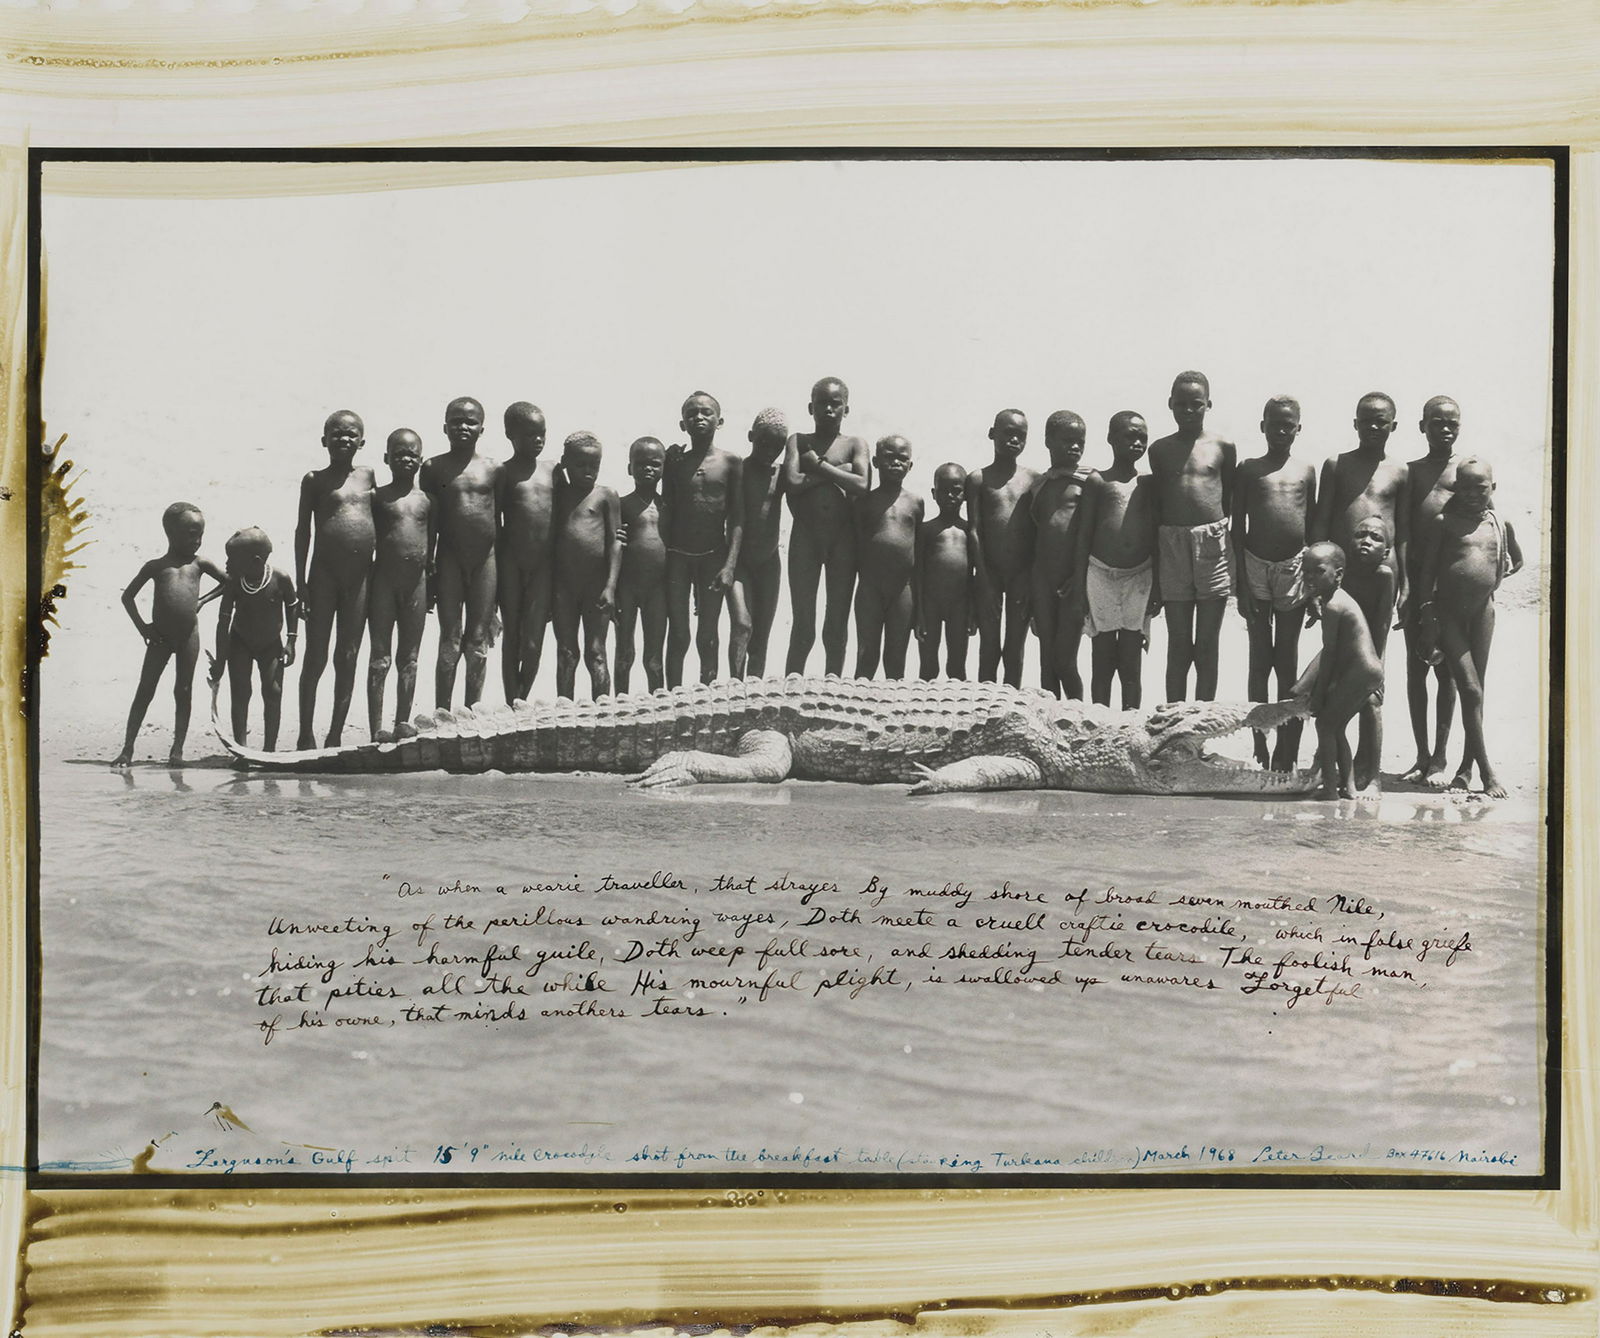 "As when a wearie traveller, that strayes By muddy shore of broad seven mouthed Nile,
Unweeting of the perillous wandring wayes, Doth meete a cruell craftie crocodile, which in false griefe
hiding his harmful guile, Doth weep full sore, and shedding tender tears The foolish man,
that pities all the while His mournful plight, is swallowed up unawares Forgetful
of his owne, that minds anothers tears."
Ferguson's Gulf spit 15'9" nile crocodile shot from the breakfast table ( Turkana ) March 1968 Peter Beard Box 47616 Nairobi